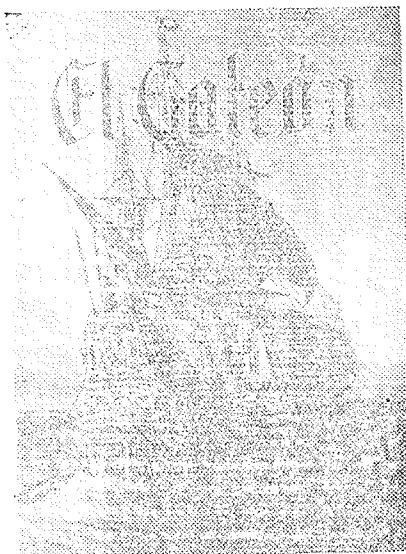 El Galeón